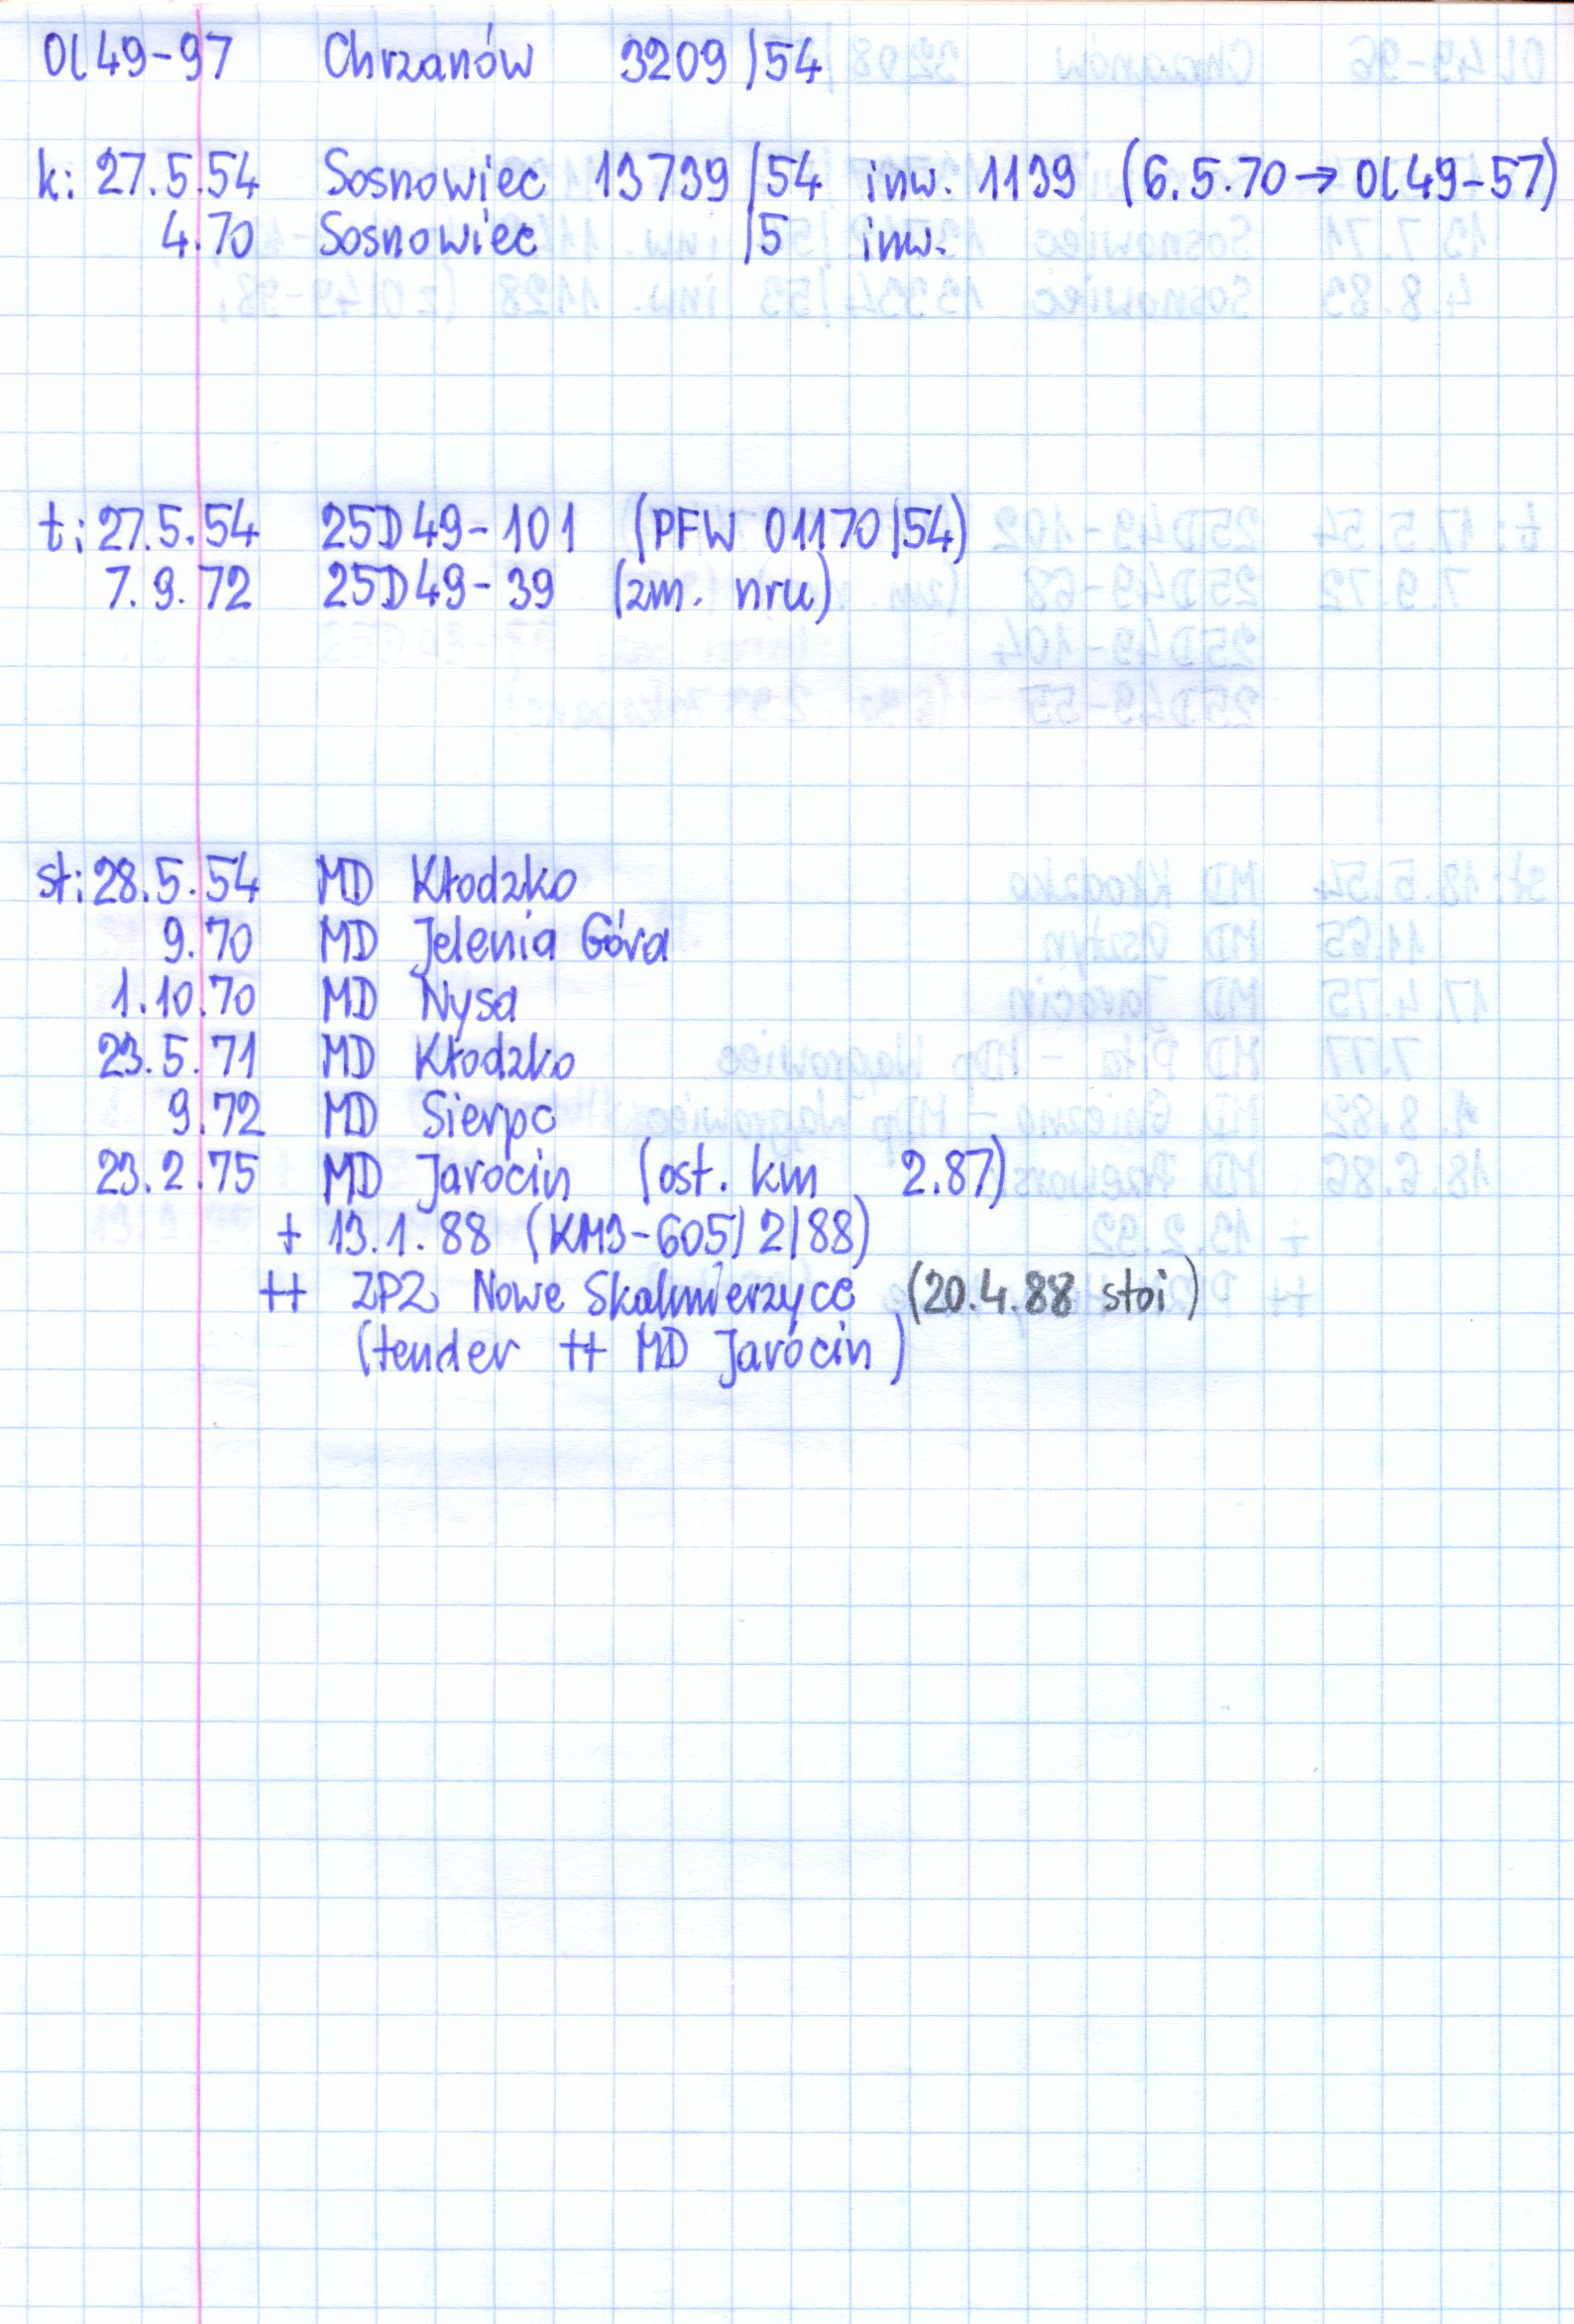 Ol49-97 Chrzanów 3209/54
k: 27.5.54 Sosnowiec 13739/54 inw. 1139 (6.5.70 → Ol49-57)
4.70 Sosnowiec /5 inw.
t: 27.5.54 25D49-101 (PFW 01170/54)
7.9.72 25D49-39 (zm. nru)
st: 28.5.54 MD Kłodzko
9.70 MD Jelenia Góra
1.10.70 MD Nysa
23.5.71 MD Kłodzko
9.72 MD Sierpc
23.2.75 MD Jarocin (ost. km 2.87)
+ 13.1.88 (KM3-605/2/88)
++ ZPZ Nowe Skalmierzyce (20.4.88 stoi)
(tender ++ MD Jarocin)